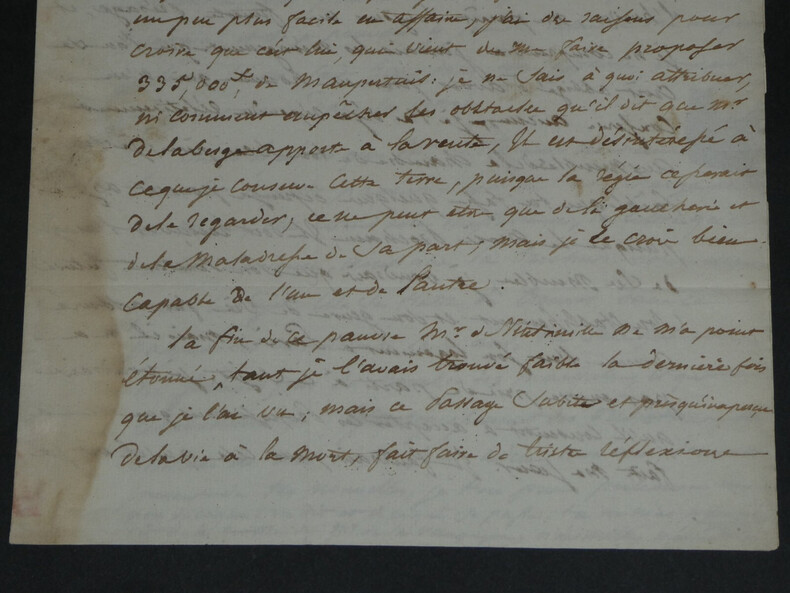 un peu plus facile en affaire, j'ai des raisons pour
croire que c'est lui, qui vient de me faire proposer
335,000 de Maupertuis: je ne sais à quoi attribuer,
ni comment empêcher les obstacles qu'il dit que Mr
Delaberge apporte à la vente, Il est désintéressé à
ce que je conserve Cette terre, puisque la régie cesserait
de le regarder; ce ne peut etre que de la gaucherie et
de la Maladresse de Sa part; mais je le crois bien
capable de l'une et de l'autre.
la fin de ce pauvre Mr de ne m'a point
étonné, tant je l'avais trouvé faible la dernière fois
que je l'ai vu; mais ce Passage Subite et presqu'inaperçu
de la vie à la mort, fait faire de triste réflexions